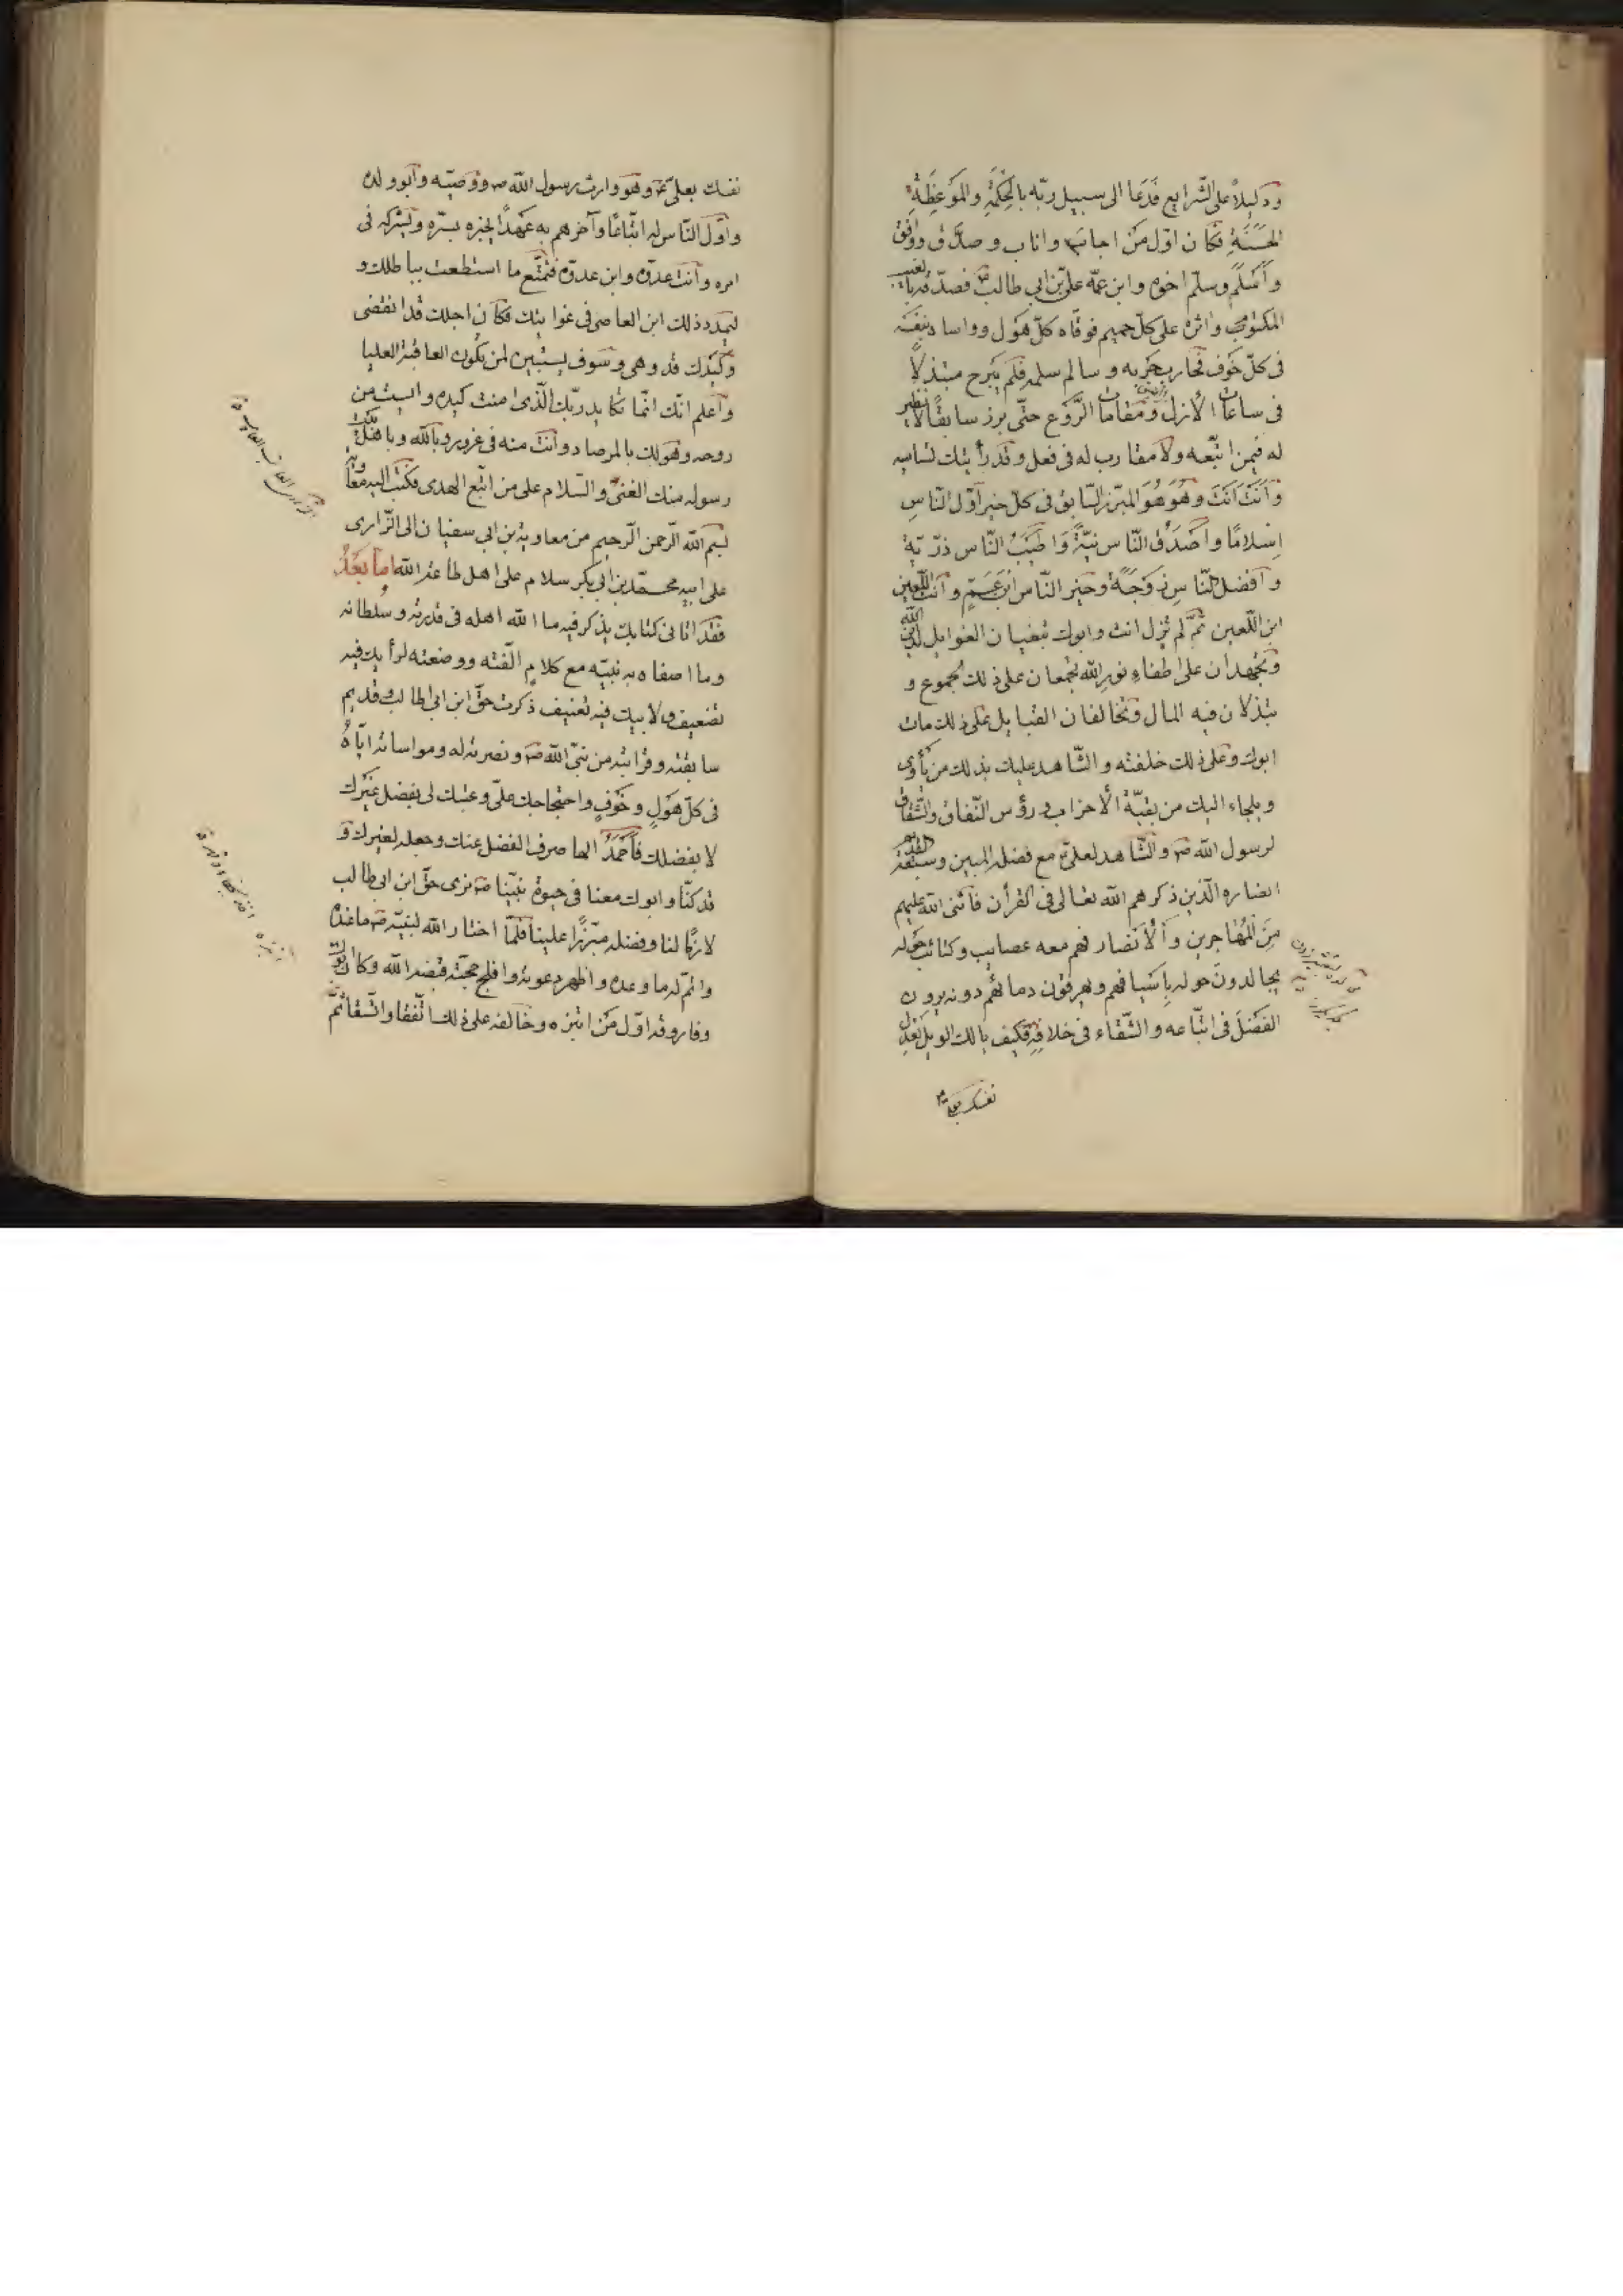 ودليلاً على الشرايع فَدَعا الى سبيل ربّه بالحِكمَةِ والمَوعِظَةِ
الحَسَنَةِ فكان اوّل مَن اجابَ واناب وصدَّق ووافق
وأسلَمَ وسلّم اخوه وابن عمّه علىّ بن ابي طالب فصدّقه بالغيب
المكتوم واثره على كلّ حميم فوقاه كلّ هَول وواساه بنفسه
فى كلّ خَوف فحارب حَربه وسالم سلمه فلَم يَبرح مبتذلاً
فى ساعات الأزل ومقامات الرَّوع حتّى برز سابقاً لا نظير
له فيمن اتّبعه ولا مقارب له فى فعل وقد رأيتك تساميه
وأنتَ أنتَ وهُوَ هُوَ المبرّز السّابق فى كلّ خير اوّل النّاسِ
اِسلامًا واَصدَق النّاس نيّةً وَاَطيَبُ النّاس ذرّيّةً
وأفضل النّاسِ زَوجَةً وخير النّاس ابن عَمٍّ وأنت اللّعين
ابن اللّعين ثمّ لم تزل انت وابوك تبغيان الغوايل لدين الله
وتجهدان على اطفاءِ نورِ الله تجمعان على ذلك الجموع و
تبذلان فيه المال وتخالفان القبايل على ذلك مات
ابوك وعلى ذلك خلفته والشّاهد عليك بذلك من يأوى
ويلجاء اليك من بقيّة الأحزاب ورؤس النّفاق والشّقاق
لرسول الله ص والشّاهد لعلىّ مع فضله المبين وسبقه القديم
انصاره الّذين ذكرهم الله تعالى فى القرأن فأثنى الله عليهم
مِنَ المُهاجرين وَالأنصار فهم معه عصايب وكتائب حوله
يجالدونَ حوله بِاَسيافهم ويهرقون دمائهُم دونه يرون
الفَضلَ فى اتّباعه والشّقاء فى خلافِهِ فكيف يالك الويل تعدل
نفسك بعلى
نفسك بعلىّ ع وهو وارث رسول الله ص ووَصيّه وأبو ولده
واوّل النّاس له اتّباعًا وآخرهم به عَهدًا يخبره بسرّه ويشركه فى
امره وأنت عدوّه وابن عدوّه فتمتّع ما استطعت بباطلك و
ليمدد ذلك ابن العاصى فى غوايتك فكأن اجلك قد انقضى
وكَيدك قد وهى وسَوف يستبين لمن يكون العاقبة العليا
وأعلم انّك انّما تكايد ربّك الّذى امنت كيده وايست من
روحه وهو لك بالمرصاد وأنت منه فى غرور وبالله وباهل بيت
رسوله عنك الغنى والسّلام على من اتّبع الهدى فكتب اليه معاوية
بسم الله الرّحمن الرّحيم من معاوية بن ابى سفيان الى الزّارى
على ابيه محمّد بن ابى بكر سلام على اهل طاعة الله امّا بَعدُ
فقد اتانى كتابك يذكر فيه ما الله اهله فى قدرته وسُلطانه
وما اصفاه به نبيّه مع كلام الّفته ووضعته لرأيك فيه
تضعيف ولابيك فيه تعنيف ذكرت حقّ ابن ابى طالب وقديم
سابقته وقرابته من نبىّ الله ص ونصرته له ومواساته ايّاهُ
فى كلّ هَولٍ وخَوفٍ واحتجاجك علىّ وعيبك لى بفضل غَيرك
لا بفضلك فأحمَدُ الها صرف الفضل عنك وجعله لغيرك و
قد كنّا وابوك معنا فى حيوة نبيّنا ص نرى حقّ ابن ابى طالب
لازمًا لنا وفضله مبرّزًا علينا فلمّا اختار الله لنبيّه ص ما عنده
واتمّ له ما وعده واظهر دعوته وافلج حجّته قبضه الله وكان ابوك
وفاروقه اوّل مَن ابتزّه وخالفه على ذلك اتّفقا واتّسقا ثمّ